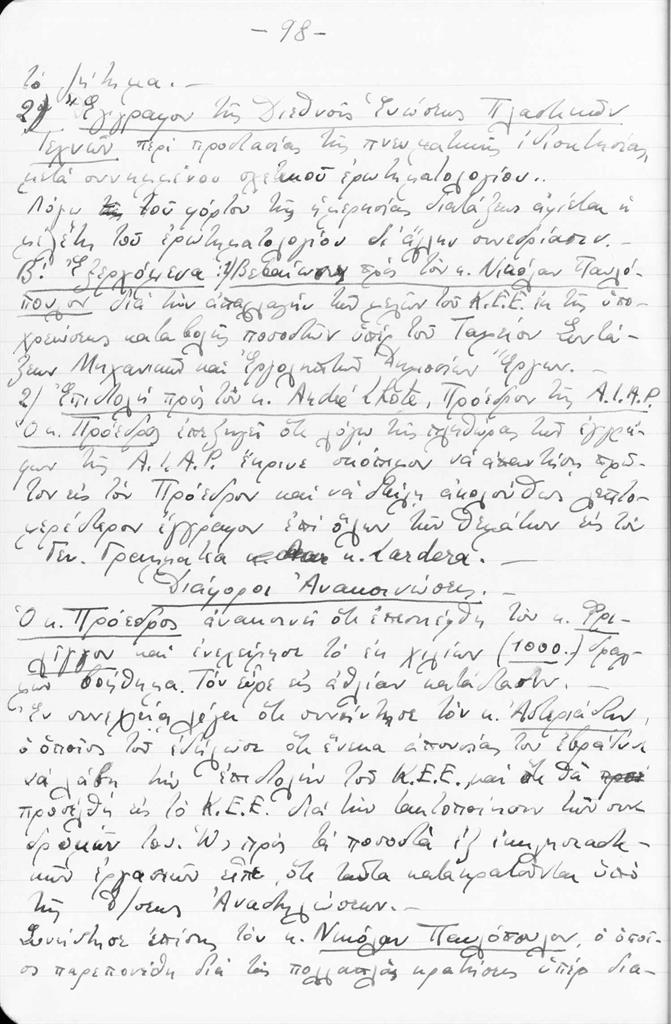 - 98 -
τό ζήτημα. –
2) Ἔγγραφον τῆς Διεθνοῦς Ἑνώσεως Πλαστικῶν
Τεχνῶν περί προστασίας τῆς πνευματικῆς ἰδιοκτησίας,
μετά συνημμένου σχετικοῦ ἐρωτηματολογίου..
Λόγῳ τοῦ φόρτου τῆς ἡμερησίας διατάξεως ἀφίεται ἡ
μελέτη τοῦ ἐρωτηματολογίου δι' ἄλλην συνεδρίασιν. –
Β': Ἐξερχόμενα: 1) Βεβαίωσις πρός τόν κ. Νικόλαν Παυλό-
πουλον διά τήν ἀπαλλαγήν τῶν μελῶν τοῦ Κ.Ε.Ε. ἐκ τῆς ὑπο-
χρεώσεως καταβολῆς ποσοστῶν ὑπέρ τοῦ Ταμείου Συντά-
ξεων Μηχανικῶν καί Ἐργοληπτῶν Δημοσίων Ἔργων. –
2) Ἐπιστολή πρός τόν κ. André Lhote, Πρόεδρον τῆς A.I.A.P.
Ὁ κ. Πρόεδρος ἐπεξηγεῖ ὅτι λόγῳ τῆς πληθώρας τῶν ἐγγρά-
φων τῆς A.I.A.P. ἔκρινε σκόπιμον νά ἀπαντήσῃ πρῶ-
τον εἰς τόν Πρόεδρον καί νά στείλῃ ἀκολούθως λεπτο-
μερέστερον ἔγγραφον ἐπί ὅλων τῶν θεμάτων εἰς τόν
Γεν. Γραμματέα κ. Lardera. –
Διάφοροι Ἀνακοινώσεις. –
Ὁ κ. Πρόεδρος ἀνακοινοῖ ὅτι ἐπεσκέφθη τόν κ. Φρι-
λίγγον καί ἐνεχείρησε τό ἐκ χιλίων (1000.) δραχ-
μῶν βοήθημα. Τόν εὗρε εἰς ἀθλίαν κατάστασιν. –
Ἐν συνεχείᾳ λέγει ὅτι συνήντησε τόν κ. Ἀστεριάδην,
ὁ ὁποῖος τοῦ ἐδήλωσε ὅτι ἕνεκα ἀπουσίας του ἐβράδυνε
νά λάβῃ τήν ἐπιστολήν τοῦ Κ.Ε.Ε. καί ὅτι θά
προσέλθῃ εἰς τό Κ.Ε.Ε. διά τήν τακτοποίησιν τῶν συν-
δρομῶν του. Ὡς πρός τά ποσοστά ἐξ ἐκκλησιαστι-
κῶν ἐργασιῶν εἶπε, ὅτι ταῦτα κατακρατοῦνται ὑπό
τῆς Δ/σεως Ἀναστηλώσεων. –
Συνήντησε ἐπίσης τόν κ. Νικόλαν Παυλόπουλον, ὁ ὁποῖ-
ος παρεπονέθη διά τάς πολλαπλάς κρατήσεις ὑπέρ δια-